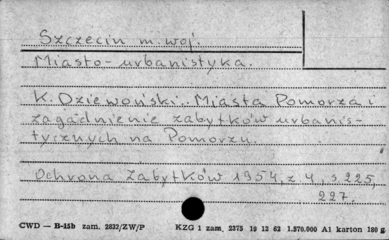 Szczecin m. woj.
Miasto - urbanistyka.
K. Dziewoński.. Miasta Pomorza i
zagadnienie zabytków urbanis-
tycznych na Pomorzu.
Ochrona Zabytków 1954, z. 4, s. 225,
227.
CWD — B-15b zam. 2832/ZW/P KZG 1 zam. 2375 19 12 62 1.570.000 A1 karton 180 g